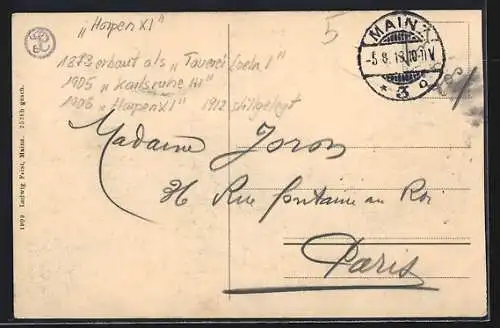 "Harpen XI"
1873 erbaut als "Tauerei Loeln I"
1905 "Karlsruhe III"
1906 "Harpen XI" 1912 stillgelegt
5
MAINZ
-5.8.13.10-11V
* 3
Madame
36 Rue fontaine au Roi
Paris
1909 Ludwig Feist, Mainz.
gesch.